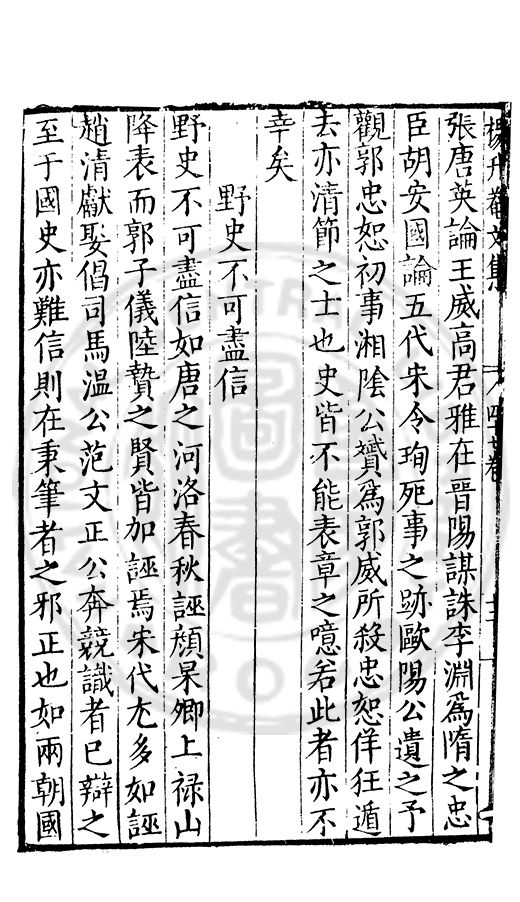 楊升菴文集
張唐英論王威高君雅在晉陽謀誅李淵爲隋之忠
臣胡安國論五代宋令珣死事之跡歐陽公遺之予
觀郭忠恕初事湘隂公贇爲郭威所殺忠恕佯狂遁
去亦清節之士也史皆不能表章之噫若此者亦不
幸矣
野史不可盡信
野史不可盡信如唐之河洛春秋誣顔杲卿上禄山
降表而郭子儀陸贄之賢皆加誣焉宋代尤多如誣
趙清獻娶倡司馬温公范文正公奔競識者已辯之
至于國史亦難信則在秉筆者之邪正也如兩朝國